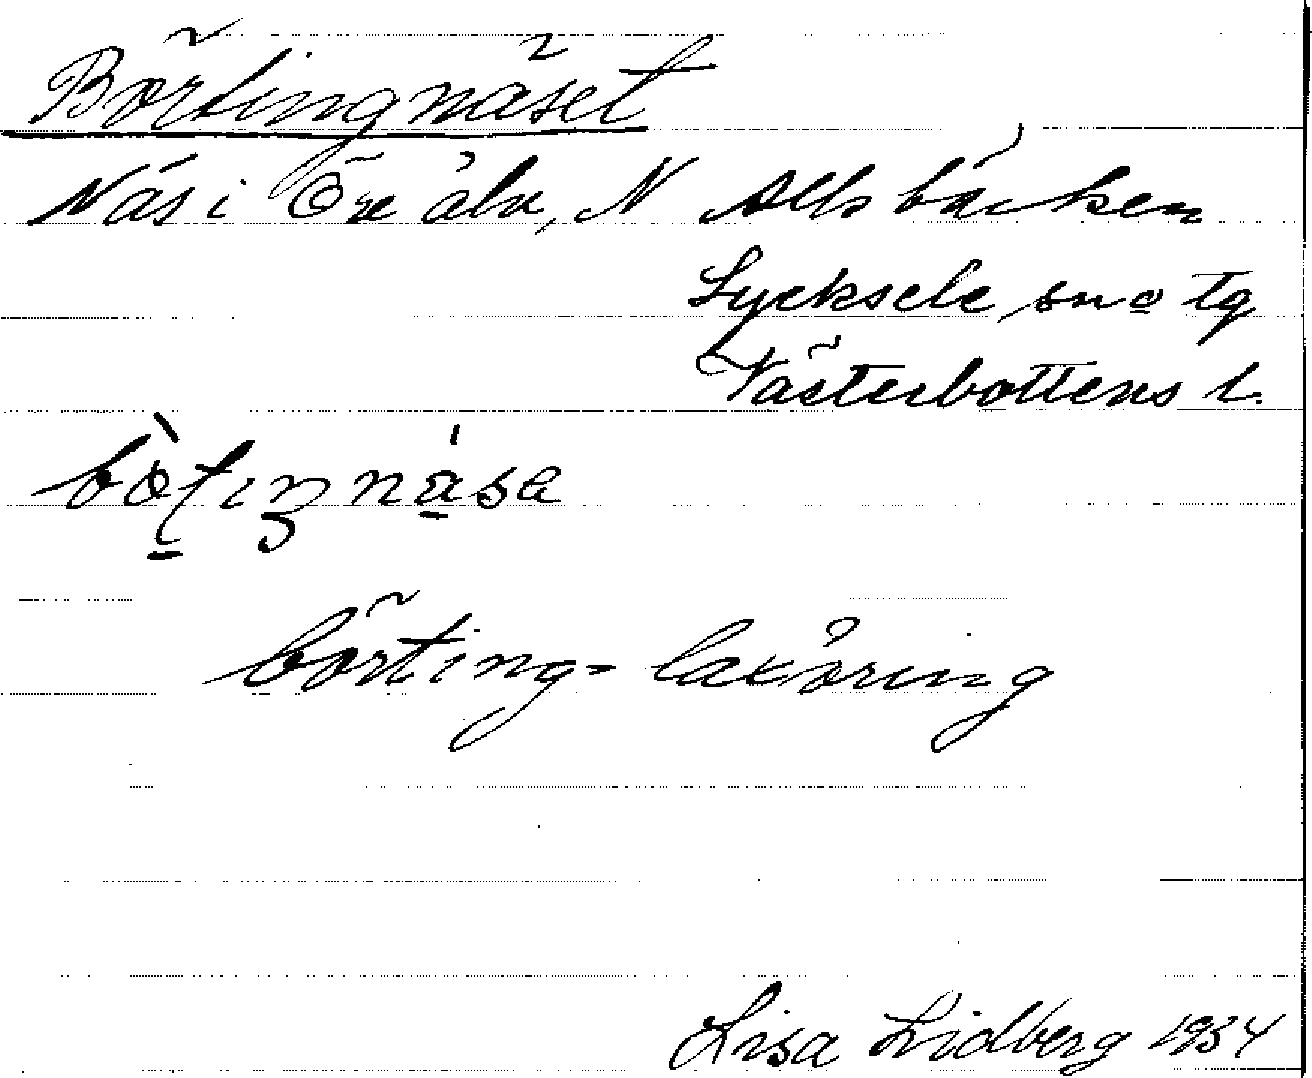 Börtingnäset
Näs i Öre älv, N Allsbäcken
Lycksele sn o tg
Västerbottens l.
börting = laxöring
Lisa Lidberg 1934